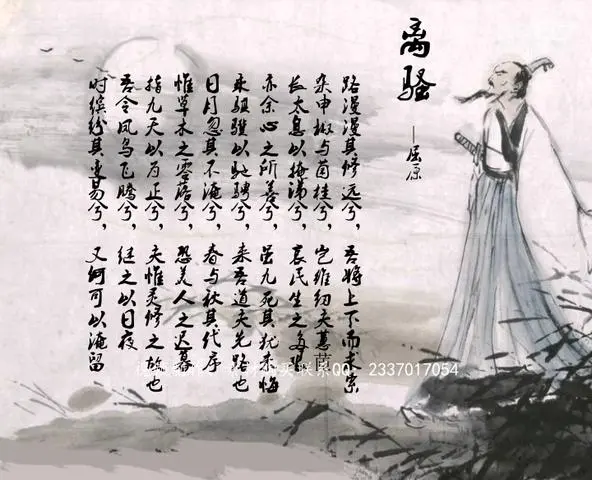 离骚
——屈原
路漫漫其修远兮，吾将上下而求索
杂申椒与菌桂兮，岂维纫夫蕙茝
长太息以掩涕兮，哀民生之多艰
亦余心之所善兮，虽九死其犹未悔
乘骐骥以驰骋兮，来吾道夫先路也
日月忽其不淹兮，春与秋其代序
惟草木之零落兮，恐美人之迟暮
指九天以为正兮，夫惟灵修之故也
吾令凤鸟飞腾兮，继之以日夜
时缤纷其变易兮，又何可以淹留
买联系QQ：2337017054